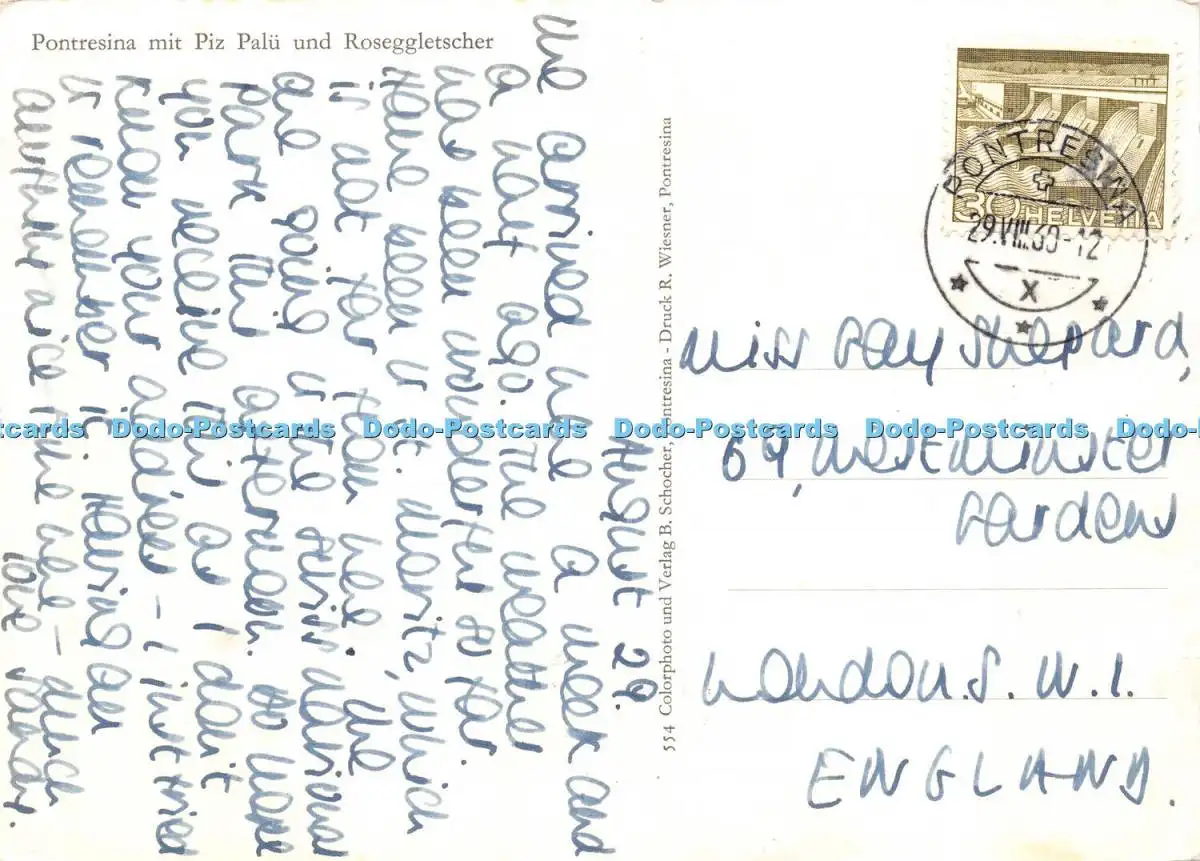 Pontresina mit Piz Palü und Roseggletscher
August 29.
We arrived here a week and
a half ago. The weather
has been wonderful so far.
Have been to St. Moritz, which
is not far from here. We
are going to the Swiss National
Park this afternoon. So hope
you receive this as I don't
know your address - I just tried
to remember it. Having an
awfully nice time here - much
love Sandy.
554 Colorphoto und Verlag B. Schocher, Pontresina - Druck R. Wiesner, Pontresina
30 HELVETIA
PONTRESINA
29.VIII.60-12
X
Miss Gay Shepard,
69, Westminster
Gardens
London. S. W. 1.
ENGLAND.
Dodo-Postcards Dodo-Postcards Dodo-Postcards Dodo-Postcards Dodo-Postcards